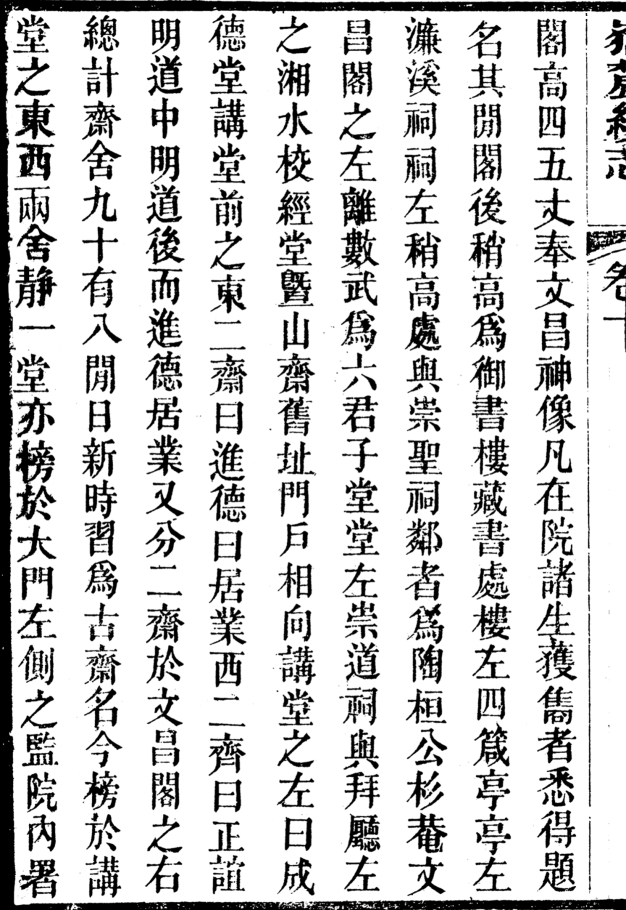 卷十
閣高四五丈奉文昌神像凡在院諸生獲雋者悉得題
名其閒閣後稍高爲御書樓藏書處樓左四箴亭亭左
濂溪祠祠左稍高處與崇聖祠鄰者爲陶桓公杉菴文
昌閣之左離數武爲六君子堂堂左崇道祠與拜廳左
之湘水校經堂暨山齋舊址門戶相向講堂之左曰成
德堂講堂前之東二齋曰進德曰居業西二齊曰正誼
明道中明道後而進德居業又分二齋於文昌閣之右
總計齋舍九十有八閒日新時習爲古齋名今榜於講
堂之東西兩舍静一堂亦榜於大門左側之監院內署